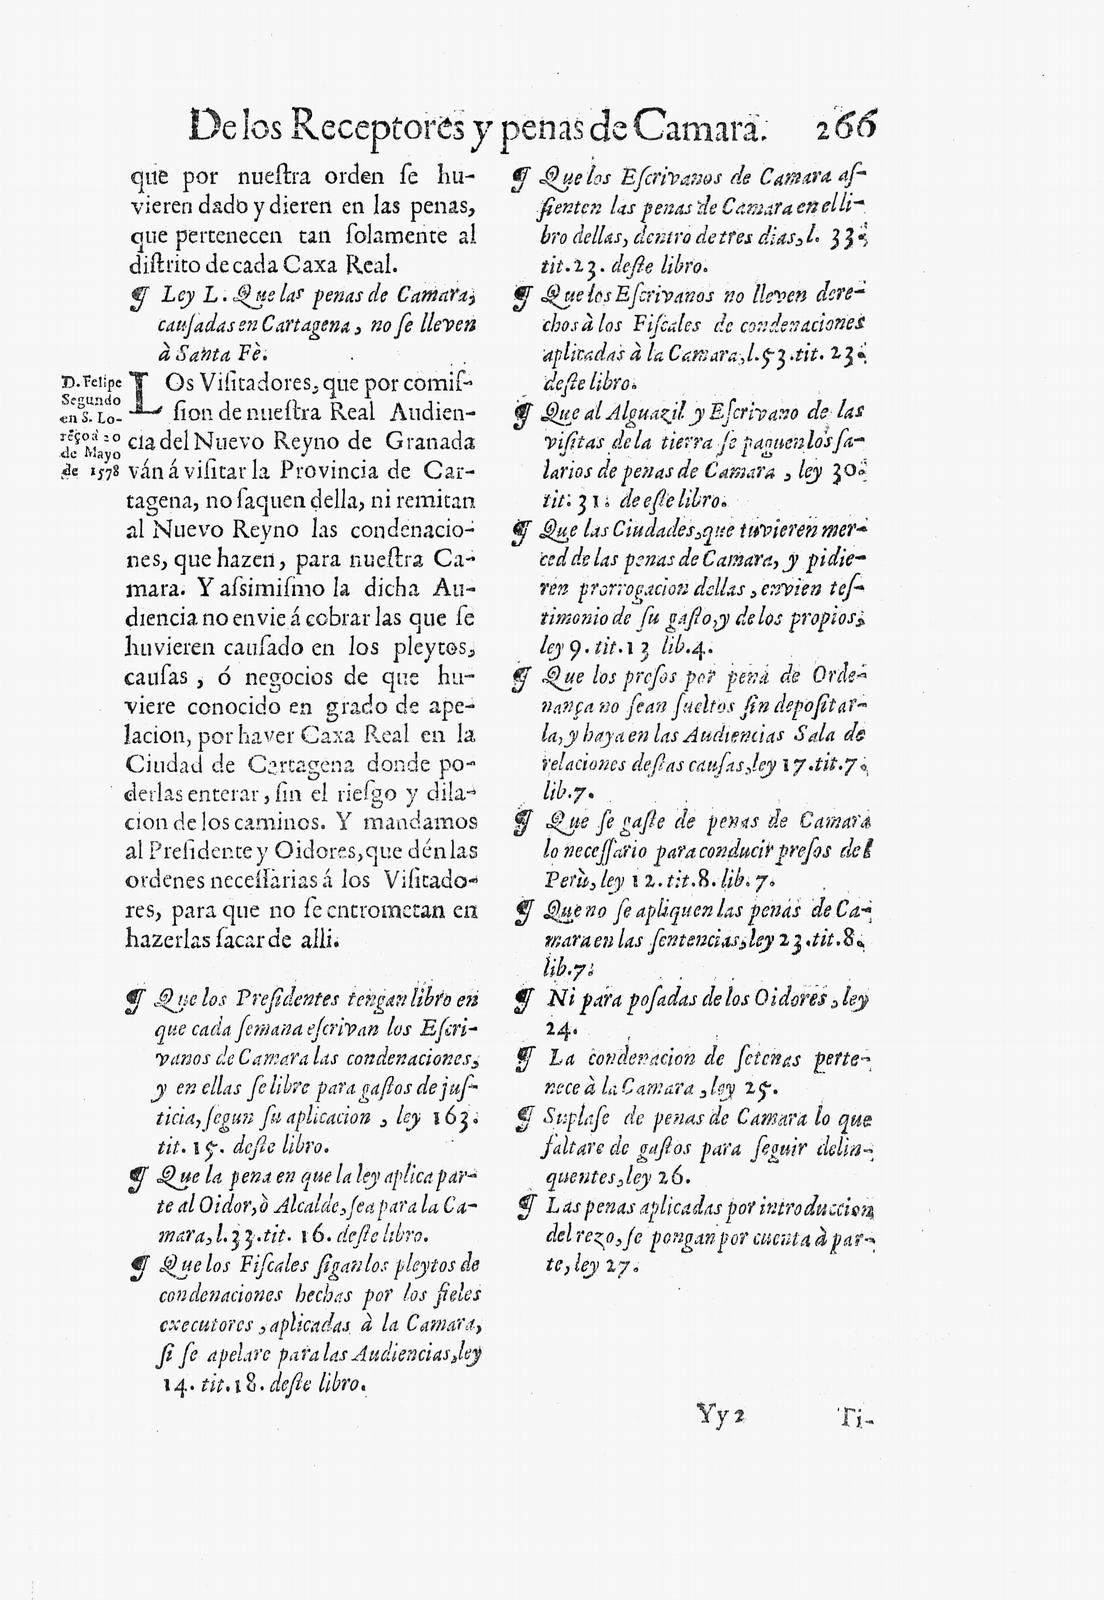 De los Receptores y penas de Camara. 266
que por nueſtra orden ſe hu-
vieren dado y dieren en las penas,
que pertenecen tan ſolamente al
diſtrito de cada Caxa Real.
¶ Ley L. Que las penas de Camara,
cauſadas en Cartagena, no ſe lleven
à Santa Fè.
D. Felipe
Segundo
en S. Lo-
reço à 20
de Mayo
de 1578
LOs Viſitadores, que por comiſ-
ſion de nueſtra Real Audien-
cia del Nuevo Reyno de Granada
ván á viſitar la Provincia de Car-
tagena, no ſaquen della, ni remitan
al Nuevo Reyno las condenacio-
nes, que hazen, para nueſtra Ca-
mara. Y aſsimiſmo la dicha Au-
diencia no envie á cobrar las que ſe
huvieren cauſado en los pleytos,
cauſas, ó negocios de que hu-
viere conocido en grado de ape-
lacion, por haver Caxa Real en la
Ciudad de Cartagena donde po-
derlas enterar, ſin el rieſgo y dila-
cion de los caminos. Y mandamos
al Preſidente y Oidores, que dén las
ordenes neceſſarias á los Viſitado-
res, para que no ſe entrometan en
hazerlas ſacar de alli.
¶ Que los Preſidentes tengan libro en
que cada ſemana eſcrivan los Eſcri-
vanos de Camara las condenaciones,
y en ellas ſe libre para gaſtos de juſ-
ticia, ſegun ſu aplicacion, ley 163.
tit. 15. deſte libro.
¶ Que la pena en que la ley aplica par-
te al Oidor, ò Alcalde, ſea para la Ca-
mara, l. 33. tit. 16. deſte libro.
¶ Que los Fiſcales ſigan los pleytos de
condenaciones hechas por los fieles
executores, aplicadas à la Camara,
ſi ſe apelare para las Audiencias, ley
14. tit. 18. deſte libro.
¶ Que los Eſcrivanos de Camara aſ-
ſienten las penas de Camara en el li-
bro dellas, dentro de tres dias, l. 33.
tit. 23. deſte libro.
¶ Que los Eſcrivanos no lleven dere-
chos à los Fiſcales de condenaciones
aplicadas à la Camara, l. 53. tit. 23.
deſte libro.
¶ Que al Alguazil y Eſcrivano de las
viſitas de la tierra ſe paguen los ſa-
larios de penas de Camara, ley 30.
tit. 31. de eſte libro.
¶ Que las Ciudades, que tuvieren mer-
ced de las penas de Camara, y pidie-
ren prorrogacion dellas, envien teſ-
timonio de ſu gaſto, y de los propios,
ley 9. tit. 13 lib. 4.
¶ Que los preſos por pena de Orde-
nança no ſean ſueltos ſin depoſitar-
la, y haya en las Audiencias Sala de
relaciones deſtas cauſas, ley 17. tit. 7.
lib. 7.
¶ Que ſe gaſte de penas de Camara
lo neceſſario para conducir preſos del
Perù, ley 12. tit. 8. lib. 7.
¶ Que no ſe apliquen las penas de Ca-
mara en las ſentencias, ley 23. tit. 8.
lib. 7.
¶ Ni para poſadas de los Oidores, ley
24.
¶ La condenacion de ſetenas perte-
nece à la Camara, ley 25.
¶ Suplaſe de penas de Camara lo que
faltare de gaſtos para ſeguir delin-
quentes, ley 26.
¶ Las penas aplicadas por introduccion
del rezo, ſe pongan por cuenta à par-
te, ley 27.
Yy 2 Ti-